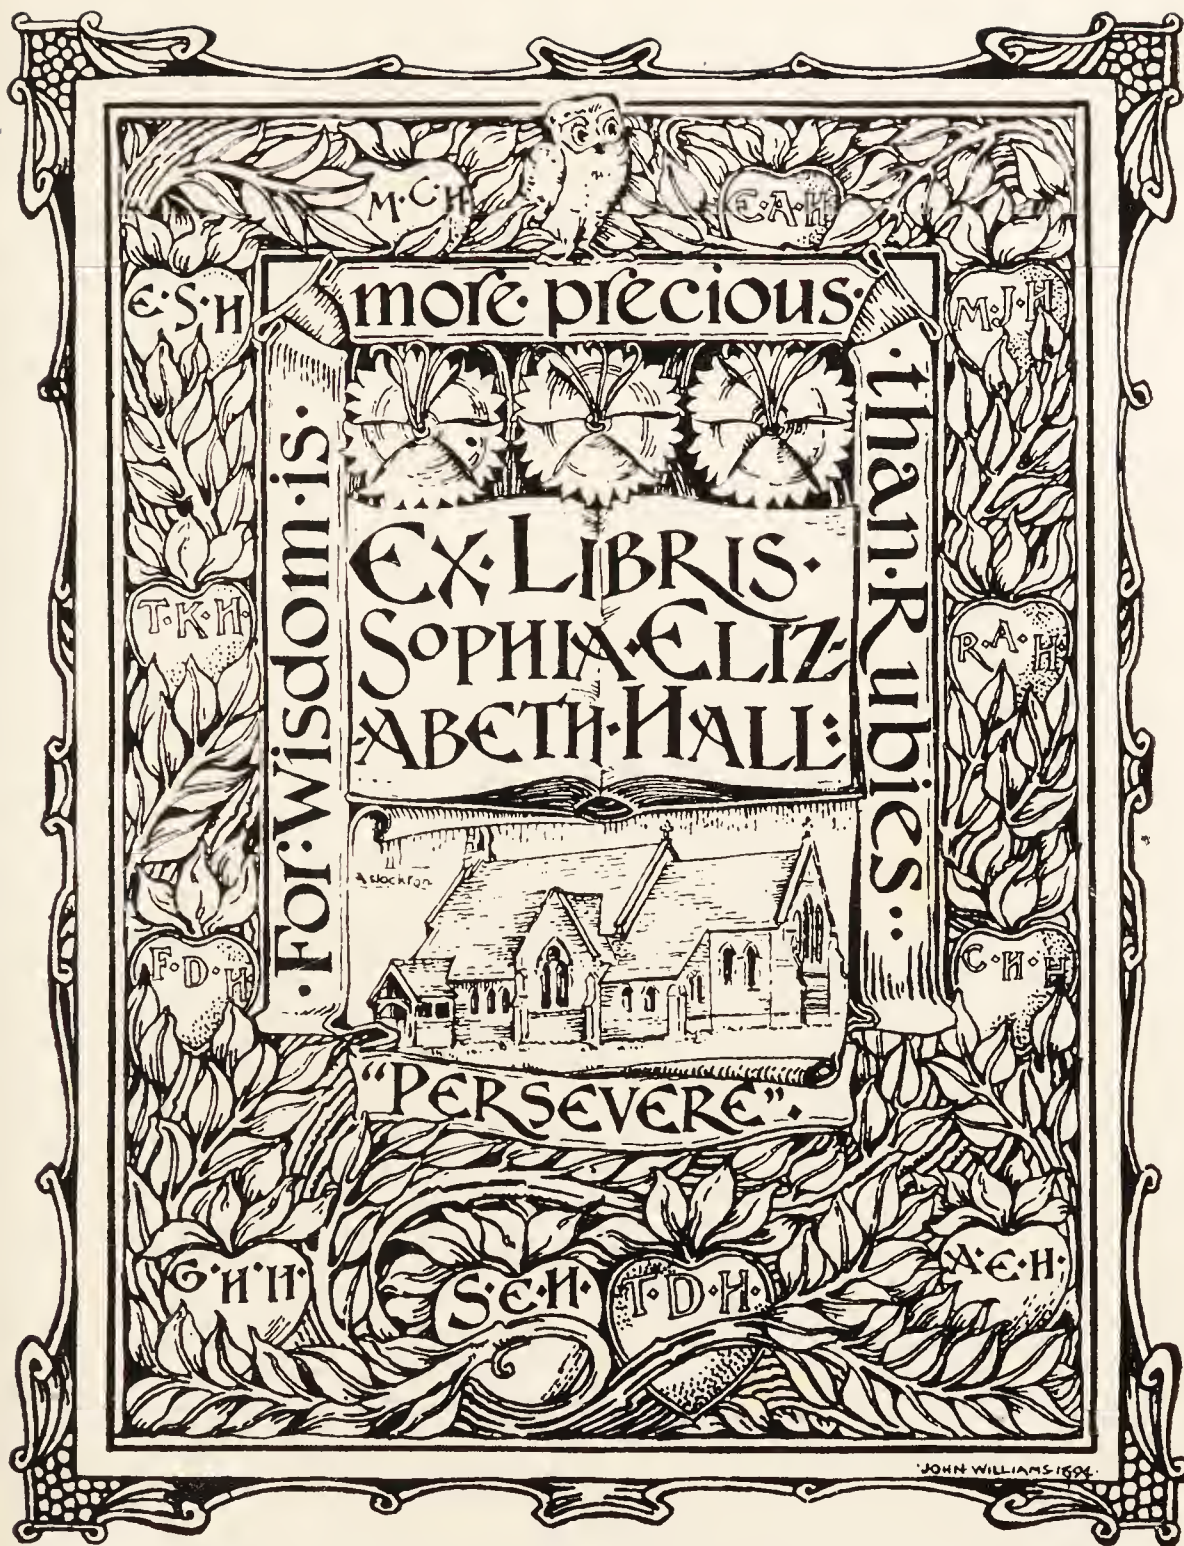 M·C·H
E·A·H
E·S·H
M·J·H
·For·Wisdom·is·
more·precious·
·than·Rubies··
Ex·Libris·
Sophia·Eliz-
abeth·Hall:
T·K·H·
R·A·H·
F·D·H
C·H·H
"Persevere".
G·H·H·
S·E·H·
T·D·H·
A·E·H·
·JOHN·WILLIAMS·1894·